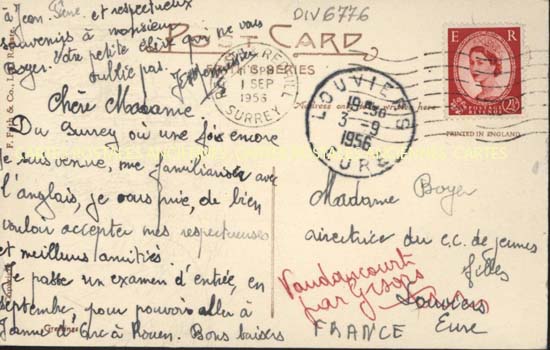 à Jean-Pene. et respectueux
souvenirs à monsieur
Boyer. Votre petite élève qui ne vous
oublie pas.
DIV6776
POST CARD
FRITH'S SERIES
F. Frith & Co., Ltd., Reigate
1 SEP
1956
SURREY
LOUVIERS
19-30
3-9
1956
EURE
E R
POSTAGE REVENUE
2½
PRINTED IN ENGLAND
Address only to be written here
Chère Madame,
Du Surrey où une fois encore
je suis venue, me familiariser avec
l'anglais, je vous prie, de bien
vouloir accepter mes respectueuses
et meilleurs amitiés
Je passe un examen d'entrée, en
septembre, pour pouvoir aller à
Jeanne d'Arc à Rouen. Bons baisers
Madame Boyer
directrice du c.c. de jeunes
filles
Louviers
Eure
Vaudancourt
par Gisors
FRANCE
CARTES